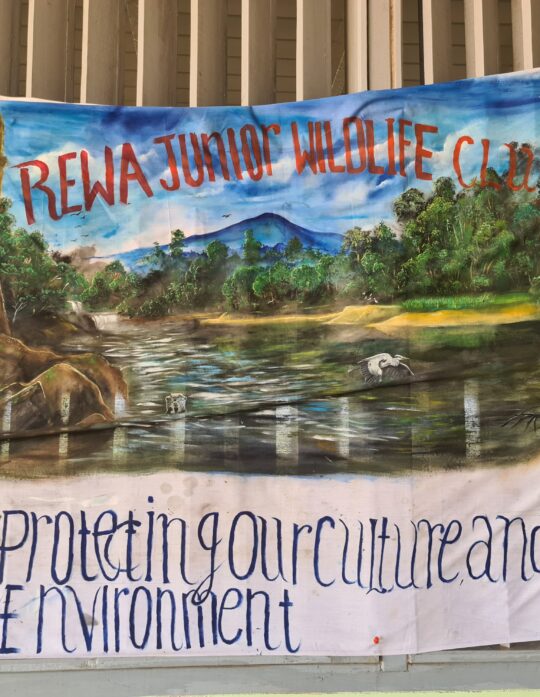 REWA JUNIOR WILDLIFE CLU
Protecting our culture, and
Environment